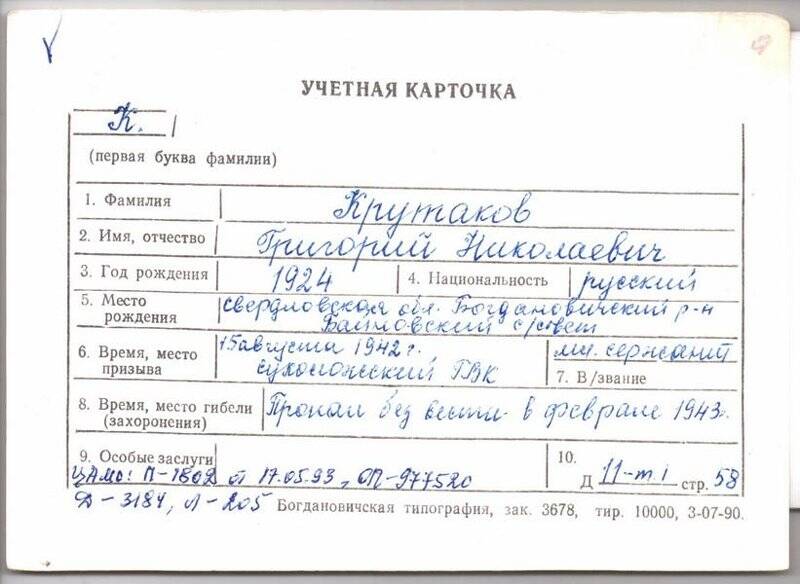 УЧЕТНАЯ КАРТОЧКА
К.
(первая буква фамилии)
1. Фамилия Крутаков
2. Имя, отчество Григорий Николаевич
3. Год рождения 1924 4. Национальность русский
5. Место рождения свердловская обл. Богдановичский р-н
Байновский с/совет
6. Время, место призыва 15 августа 1942 г.
сухоложский ГВК
мл. сержант
7. В/звание
8. Время, место гибели (захоронения) Пропал без вести в феврале 1943г.
9. Особые заслуги
ЦАМО: П-1802 от 17.05.93, ОП-977520
Д-3184, Л-205
10.
Д 11-т.1 стр. 58
Богдановичская типография, зак. 3678, тир. 10000, 3-07-90.